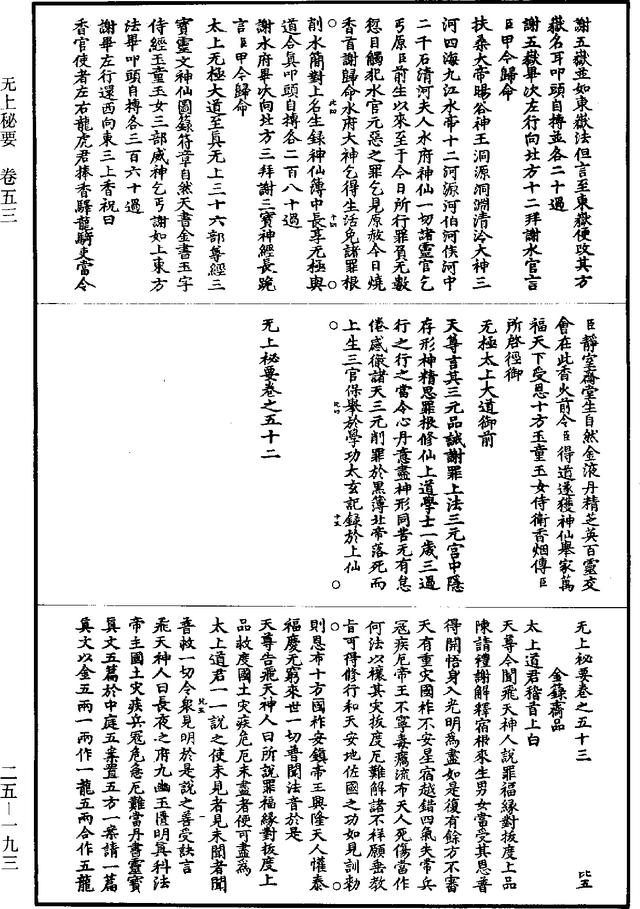 无上秘要　卷五三
二五—一九三
謝五嶽並如東嶽法但言至東嶽便改其方
嶽名耳叩頭自搏並各二十過
謝五嶽畢次左行向北方十二拜謝水官言
臣甲今歸命
扶桑大帝暘谷神王洞源洞淵清泠大神三
河四海九江水帝十二河源河伯河侯河中
二千石清河夫人水府神仙一切諸靈官乞
丐原臣前生以來至于今日所行罪負无數
忽目觸犯水官元惡之罪乞見原赦今日燒
香首謝歸命水府大神乞得生活免諸罪根
削水簡對上名生録神仙簿中長享无極與
道合真叩頭自搏各二百八十過
謝水府畢次向北方三拜謝三寶神經長跪
言臣甲今歸命
太上无極大道至真无上三十六部尊經三
寶靈文神仙圖籙符章自然天書金書玉字
侍經玉童玉女三部威神乞丐謝如上東方
法畢叩頭自搏各三百六十過
謝畢左行還西向東三上香祝曰
香官使者左右龍虎君捧香驛龍騎吏當令
臣靜室齋堂生自然金液丹精芝英百靈交
會在此香火前令臣得道遂獲神仙舉家萬
福天下受恩十方玉童玉女侍衛香烟傳臣
所啓徑御
无極太上大道御前
天尊言其三元品誡謝罪上法三元宮中隱
存形神精思罪根修仙上道學士一歲三過
行之行之當令心丹意盡神形同苦无有怠
倦感徹諸天三元削罪於黑簿北帝落死而
上生三官保舉於學功太玄記録於上仙
无上秘要卷之五十二
无上秘要卷之五十三
比五
金籙齋品
太上道君稽首上白
天尊今聞飛天神人說罪福緣對拔度上品
陳請禮謝解釋宿根來生男女當受其恩普
得開悟身入光明為盡如是復有餘方不審
天有重灾國祚不安星宿越錯四氣失常兵
寇疾厄帝王不寧毒癘流布天人死傷當作
何法以禳其灾拔度厄難解諸不祥願垂教
旨可得修行和天安地佐國之功如見訓勑
則恩布十方國祚安鎮帝王興隆天人懽泰
福慶无窮來世一切普聞法音於是
天尊告飛天神人曰所說罪福緣對拔度上
品救度國土灾疾危厄未盡者便可盡為
太上道君一一說之使未見者見未聞者聞
普救一切令衆見明於是說之善受訣言
飛天神人曰長夜之府九幽玉匱明真科法
帝主國土灾疾兵寇危急厄難當丹書靈寶
真文五篇於中庭五案置五方一案請一篇
真文以金五兩一兩作一龍五兩合作五龍